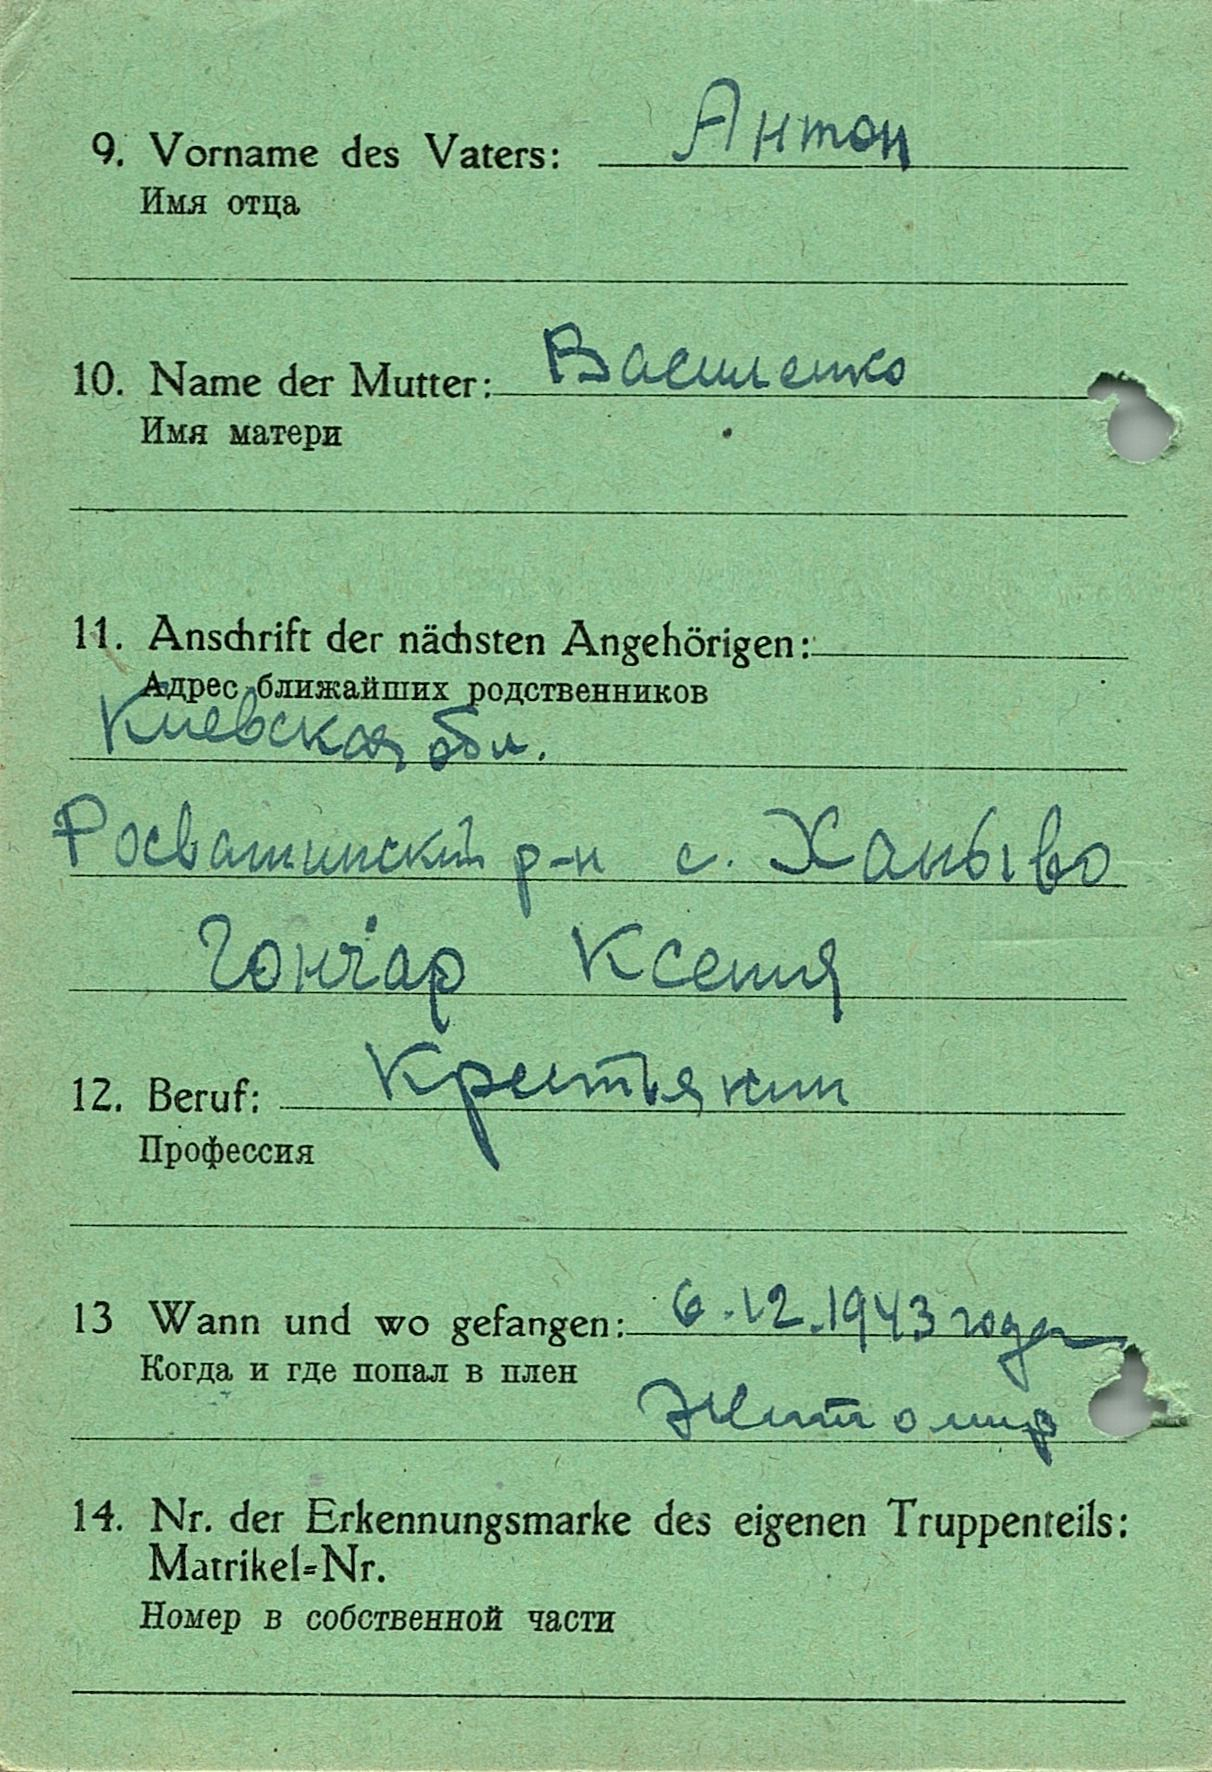 9. Vorname des Vaters: Антон
Имя отца
10. Name der Mutter: Василенко
Имя матери
11. Anschrift der nächsten Angehörigen:
Адрес ближайших родственников
Киевская обл.
р-н с.
Гончар Ксения
12. Beruf: Крестьянин
Профессия
13 Wann und wo gefangen: 6.12.1943 года
Когда и где попал в плен
Житомир
14. Nr. der Erkennungsmarke des eigenen Truppenteils:
Matrikel-Nr.
Номер в собственной части